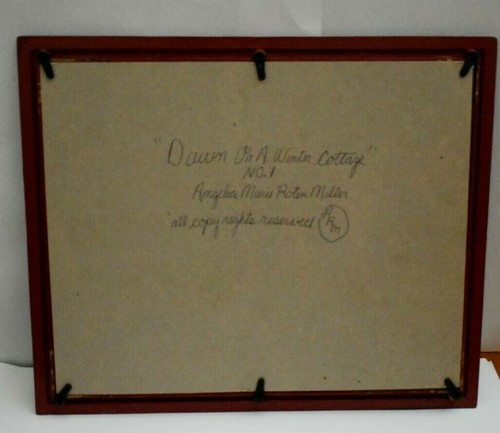 "Dawn On A Winter Cottage"
NO. 1
Angelia Marie Roten Miller
"all copy rights reserved ARM